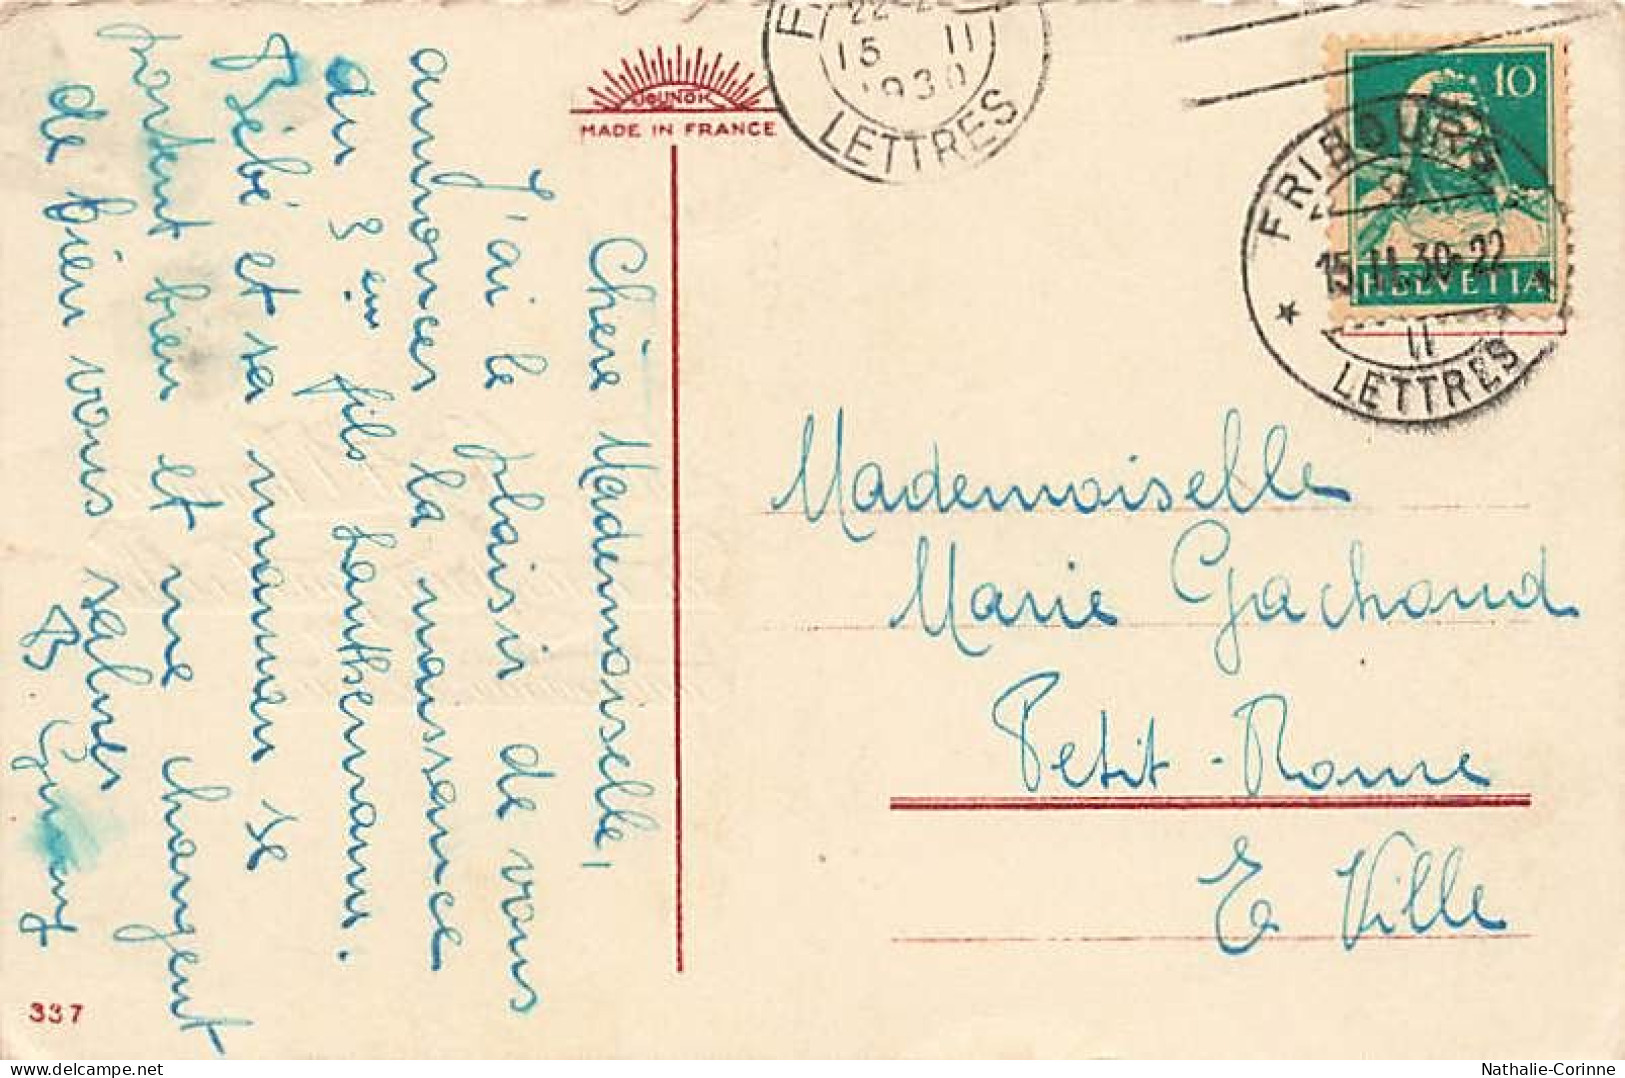 Chère Mademoiselle,
J'ai le plaisir de vous
annoncer la naissance
du 3em fils Lanthemann.
Bébé et sa maman se
portent bien et me chargent
de bien vous saluer
B
337
MADE IN FRANCE
22-2
15 II
1930
LETTRES
10
HELVETIA
FRIBOURG
15.II.30-22
II
LETTRES
Mademoiselle
Marie Gachoud
Petit-Rome
E. Ville
Nathalie-Corinne